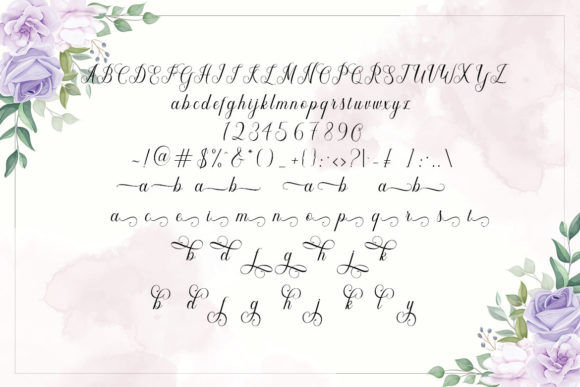 ABCDEFGHIJKLMNOPQRSTUVWXYZ
abcdefghijklmnopqrstuvwxyz
1234567890
~!@#$%^&*()_+{}:<>?[-£ /;'..\
a b a b a b a b
a c e i m n o p q r s t
b d f g h j k
b d f g h j k l y